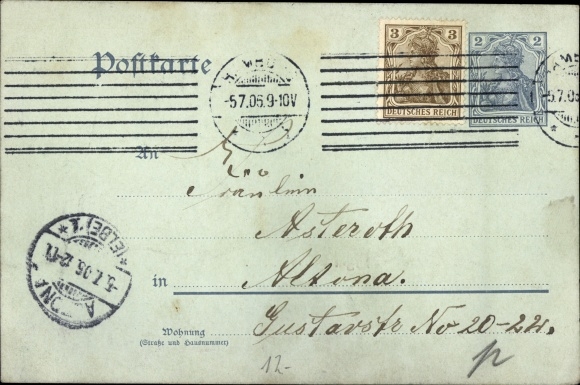 Postkarte
HAMBU
-5.7.06.9-10V
3
DEUTSCHES REICH
2
DEUTSCHES REICH
HAMBU
-5.7.06
An
Fräulein
Asteroth
in Altona.
Wohnung
(Straße und Hausnummer)
Gustavstr No 20-22.
ALTONA
5.7.06.12-1
*(ELBE) 1*
12-
p